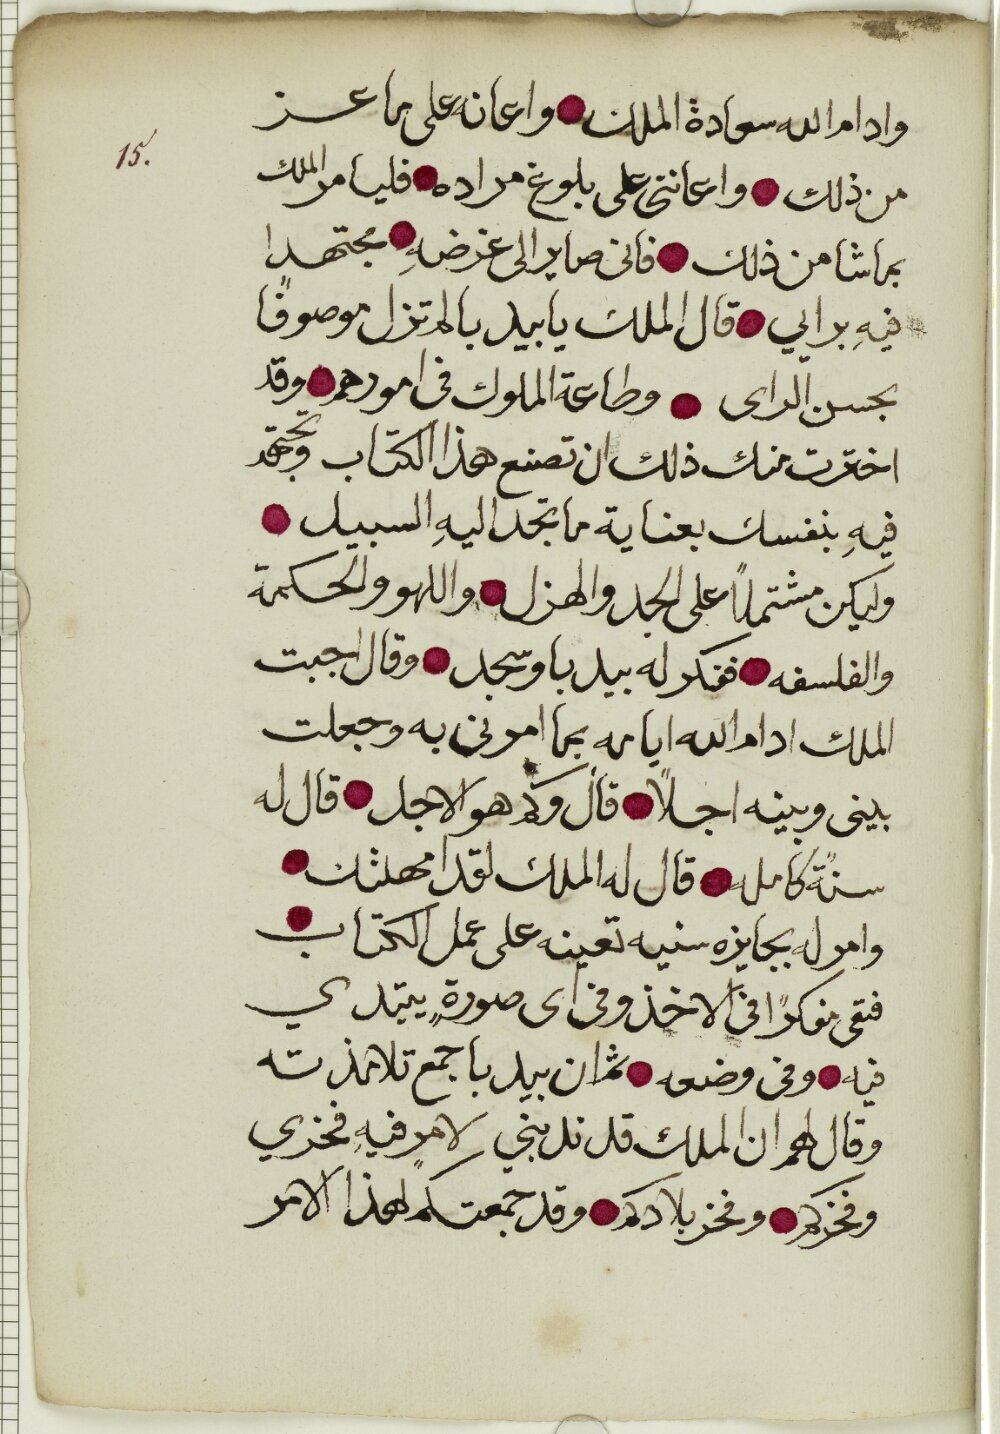 15.
وادام الله سعادة الملك ● واعانه على ما عـــز
من ذلك ● واعانني على بلوغ مراده ● فليامر الملك
بما شا من ذلك ● فانى صاير الى غرضهِ ● مجتهدا
فيهِ برايي ● قال الملك يا بيدبا لم تزل موصوفًا
بحسن الراى ● وطاعة الملوك فى امورهم ● وقد
اخترت منك ذلك ان تصنع هذا الكتاب وتجتهد
فيهِ بنفسك بعناية ما تجد اليهِ السبيل ●
وليكن مشتملاً على الجد والهزل ● واللهو والحكمة
والفلسفه ● ففكر له بيدبا وسجد ● وقال اجبت
الملك ادام الله ايامه بما امرنى به وجعلت
بينى وبينه اجلاً ● قال وكم هو الاجل ● قال له
سنةً كامله ● قال له الملك لقد امهلتك ●
وامر له بجايزه سنيه تعينه على عمل الكتاب ●
فبقى مفكرًا فى الاخذ وفى اى صورةٍ يبتدي
فيه ● وفى وضعه ● ثم ان بيدبا جمع تلامذته
وقال لهم ان الملك قد ندبني لامرٍ فيهِ فخري
وفخركم ● وفخر بلادكم ● وقد جمعتكم لهذا الامر